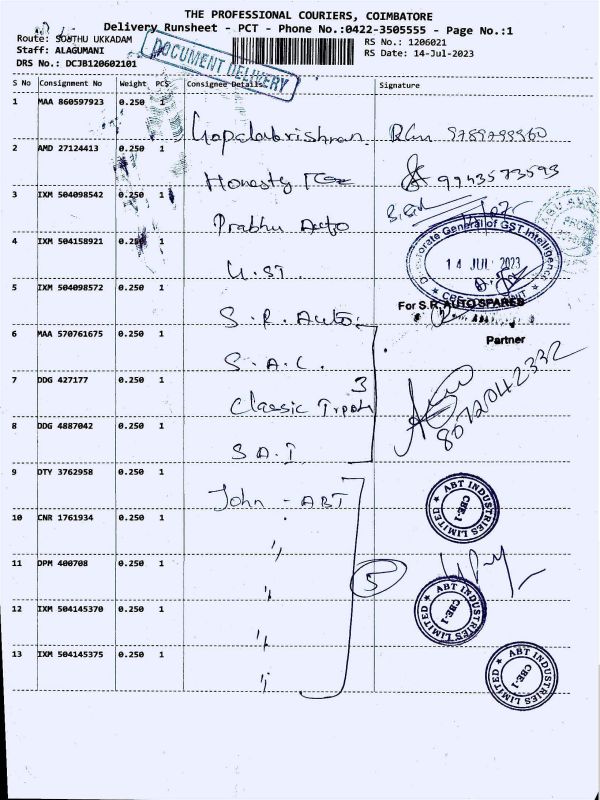 THE PROFESSIONAL COURIERS, COIMBATORE
Delivery Runsheet - PCT - Phone No.:0422-3505555 - Page No.:1
Route: SOUTHU UKKADAM
RS No.: 1206021
Staff: ALAGUMANI
RS Date: 14-Jul-2023
DRS No.: DCJB120602101
DOCUMENT DELIVERY
S No Consignment No Weight PCS Consignee Details Signature
1 MAA 860597923 0.250 1 Gopalakrishnan 9789799960
2 AMD 27124413 0.250 1 Honesty 9943573593
3 IXM 504098542 0.250 1 Prabhu Auto
4 IXM 504158921 0.250 1 G.ST
Directorate General of GST Intelligence
14 JUL 2023
5 IXM 504098572 0.250 1 S.R. Auto
For S.R. AUTO SPARES
Partner
6 MAA 570761675 0.250 1 S.A.C.
7 DDG 427177 0.250 1 Classic 3
8072042332
8 DDG 4887042 0.250 1 S.A.I
9 DTY 3762958 0.250 1 John - ABT
ABT INDUSTRIES LIMITED CBE-1
10 CNR 1761934 0.250 1 "
11 DPM 400708 0.250 1 " 5
12 IXM 504145370 0.250 1 "
ABT INDUSTRIES LIMITED CBE-1
13 IXM 504145375 0.250 1 "
ABT INDUSTRIES LIMITED CBE-1